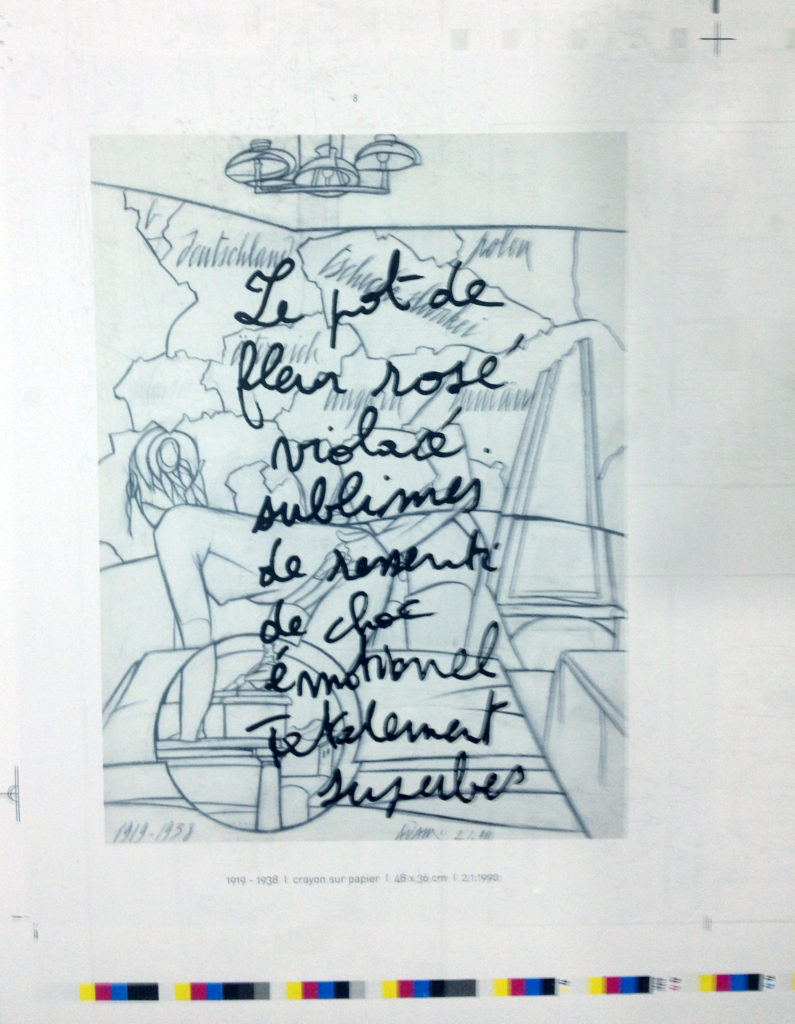 8
Deutschland
Polen
Le pot de
fleur rosé
violacé
sublimes
de ressenti
de choc
émotionnel
superbes
1919-1938
1919 - 1938 | crayon sur papier | 48 x 36 cm | 2.1.1990